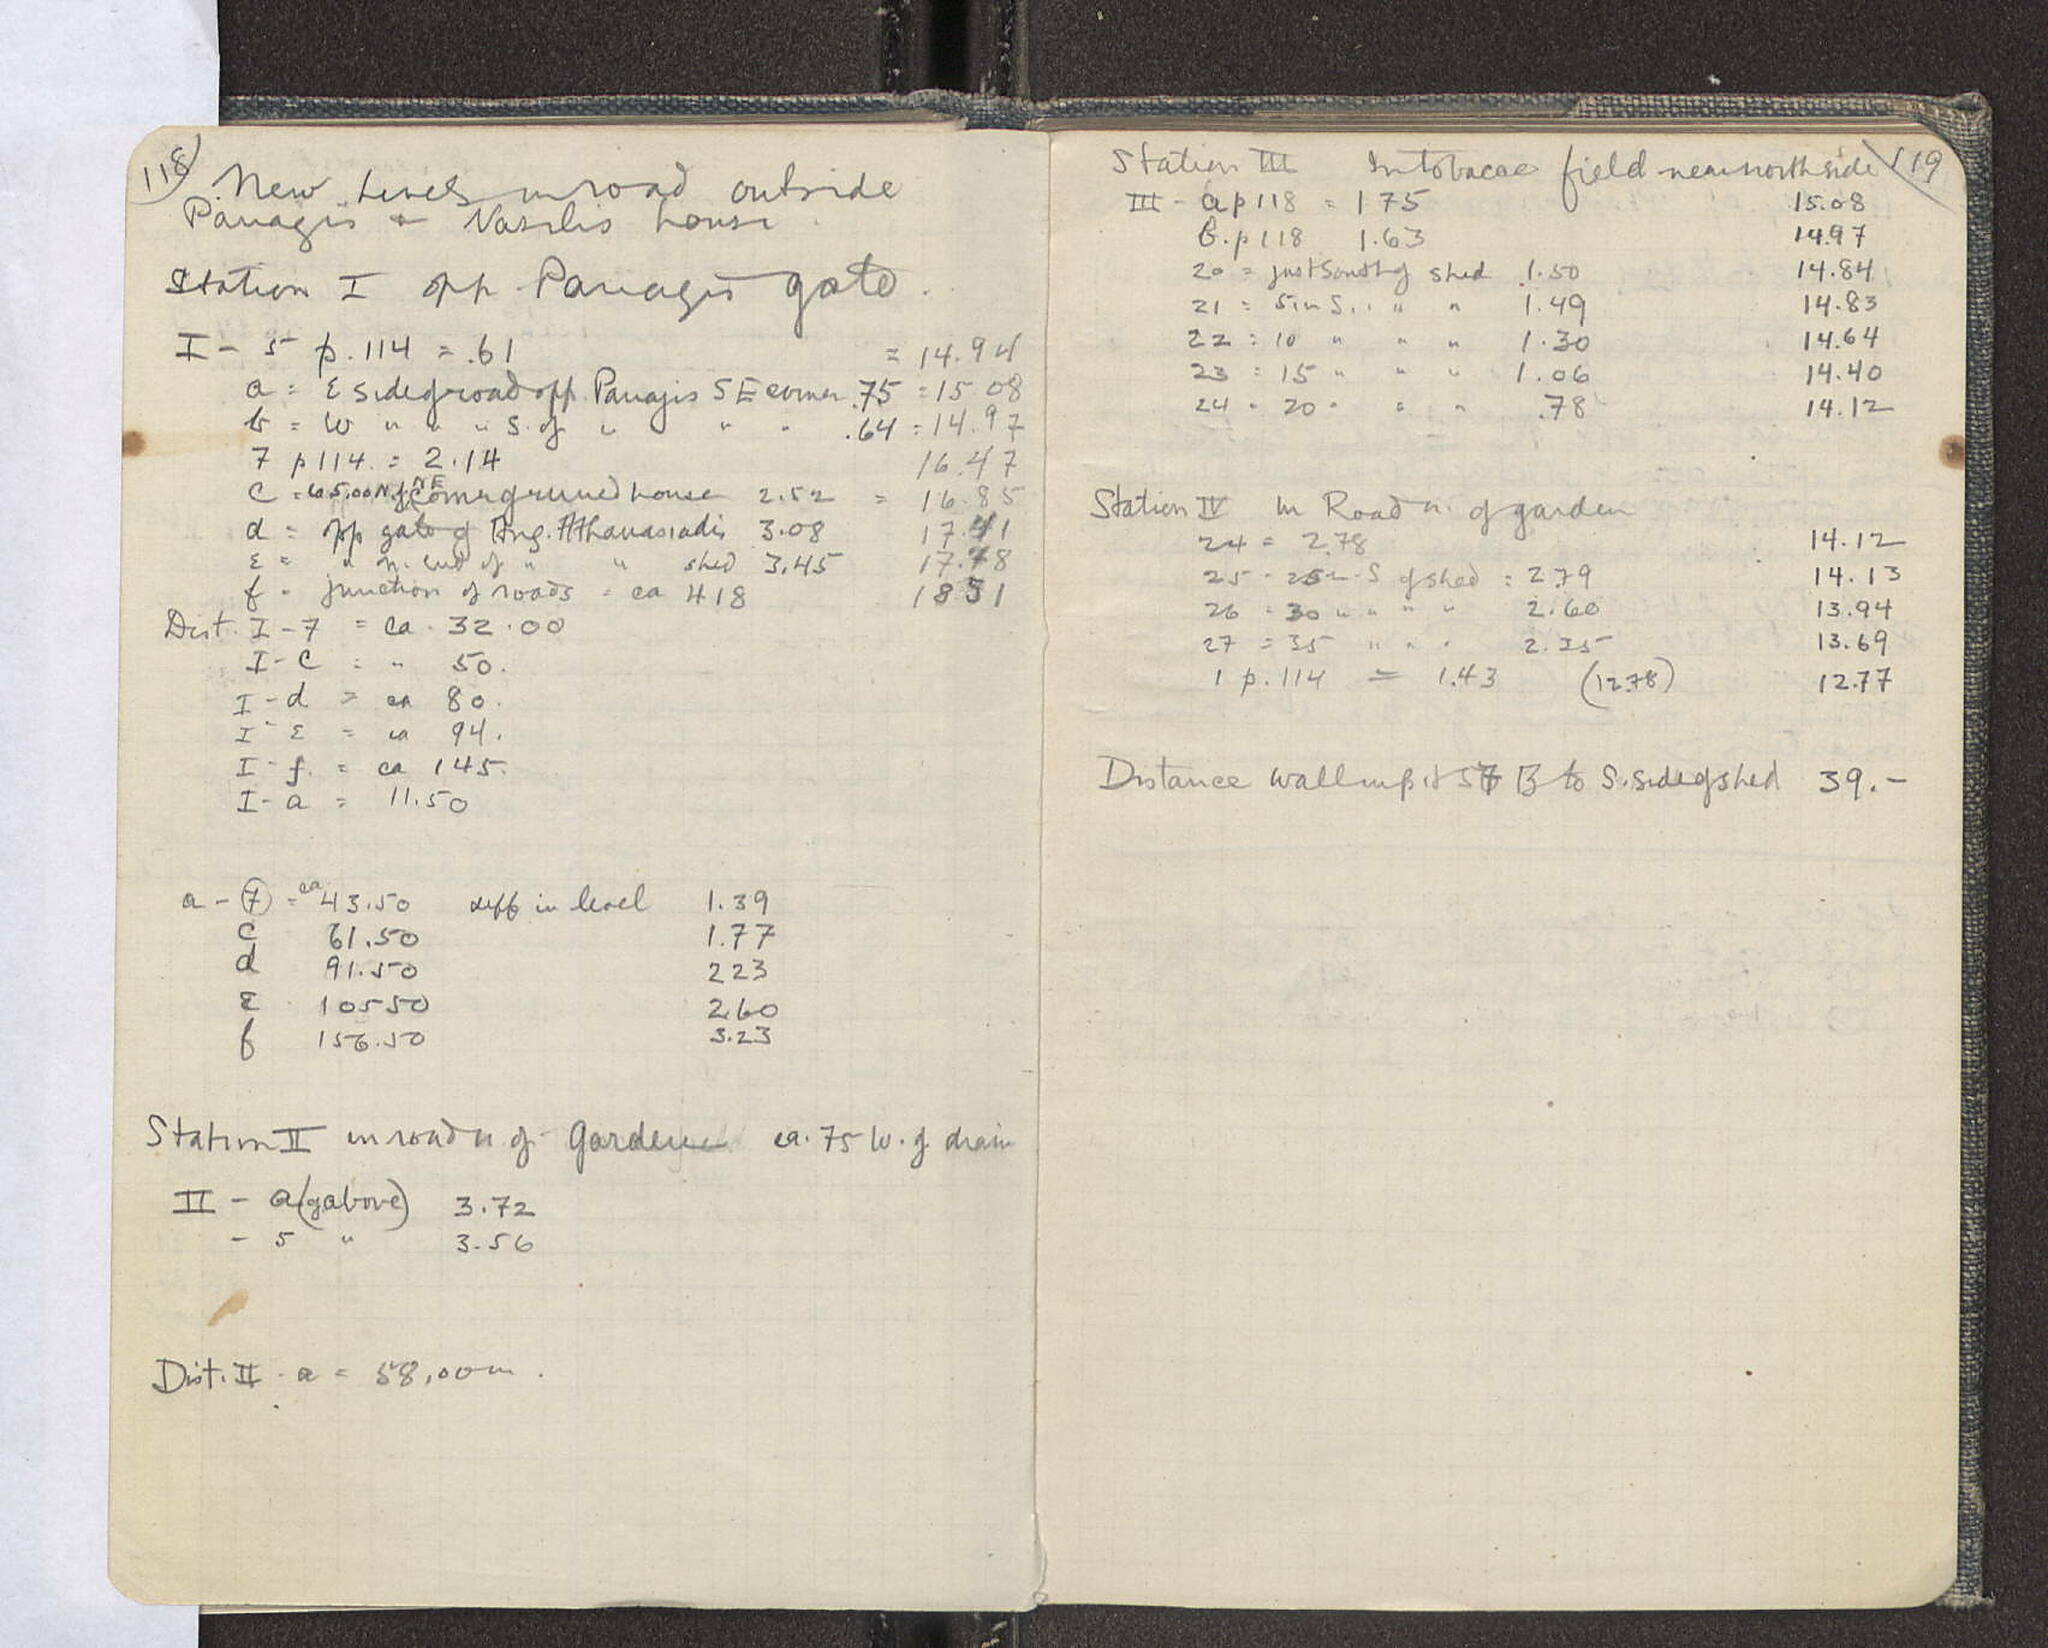 118
New Levels in road outside
Panagis + Vasilis house.
Station I opp. Panagis gate.
I - 5 p.114 = .61 = 14.94
a = E side of road opp. Panagis SE corner .75 = 15 08
b = W " " " S. of " " " .64 = 14.97
7 p114. = 2.14 16.47
C = 5.00 N. of NE Corner ground house 2.52 = 16.85
d = opp gate of Ang. Athanasiadis 3.08 17.41
ε = " n. end of " " shed 3.45 17.78
f = junction of roads = ca 418 1851
Dist. I - 7 = ca. 32.00
I - C = " 50.
I - d = ca 80.
I - ε = ca 94.
I - f. = ca 145.
I - a = 11.50
a - 7 = ca 43.50 diff in level 1.39
C 61.50 1.77
d 91.50 223
ε 10550 2.60
f 156.50 3.23
Station II in road n of Garden ca. 75 W. of drain
II - a (above) 3.72
- 5 " 3.56
Dist. II - a = 58,00m.
119
Station III In tobacco field near north side
III - a p118 = 175 15.08
b. p118 1.63 14.97
20 = just South of shed 1.50 14.84
21 = 5m S. " " 1.49 14.83
22 = 10 " " " 1.30 14.64
23 = 15 " " " 1.06 14.40
24 = 20 " " " .78 14.12
Station IV In Road n. of garden
24 = 2.78 14.12
25 = 25m S of shed = 2.79 14.13
26 = 30 " " " " 2.60 13.94
27 = 35 " " " 2.35 13.69
1 p.114 = 1.43 (12.78) 12.77
Distance wall in pit B to S. side of shed 39.-